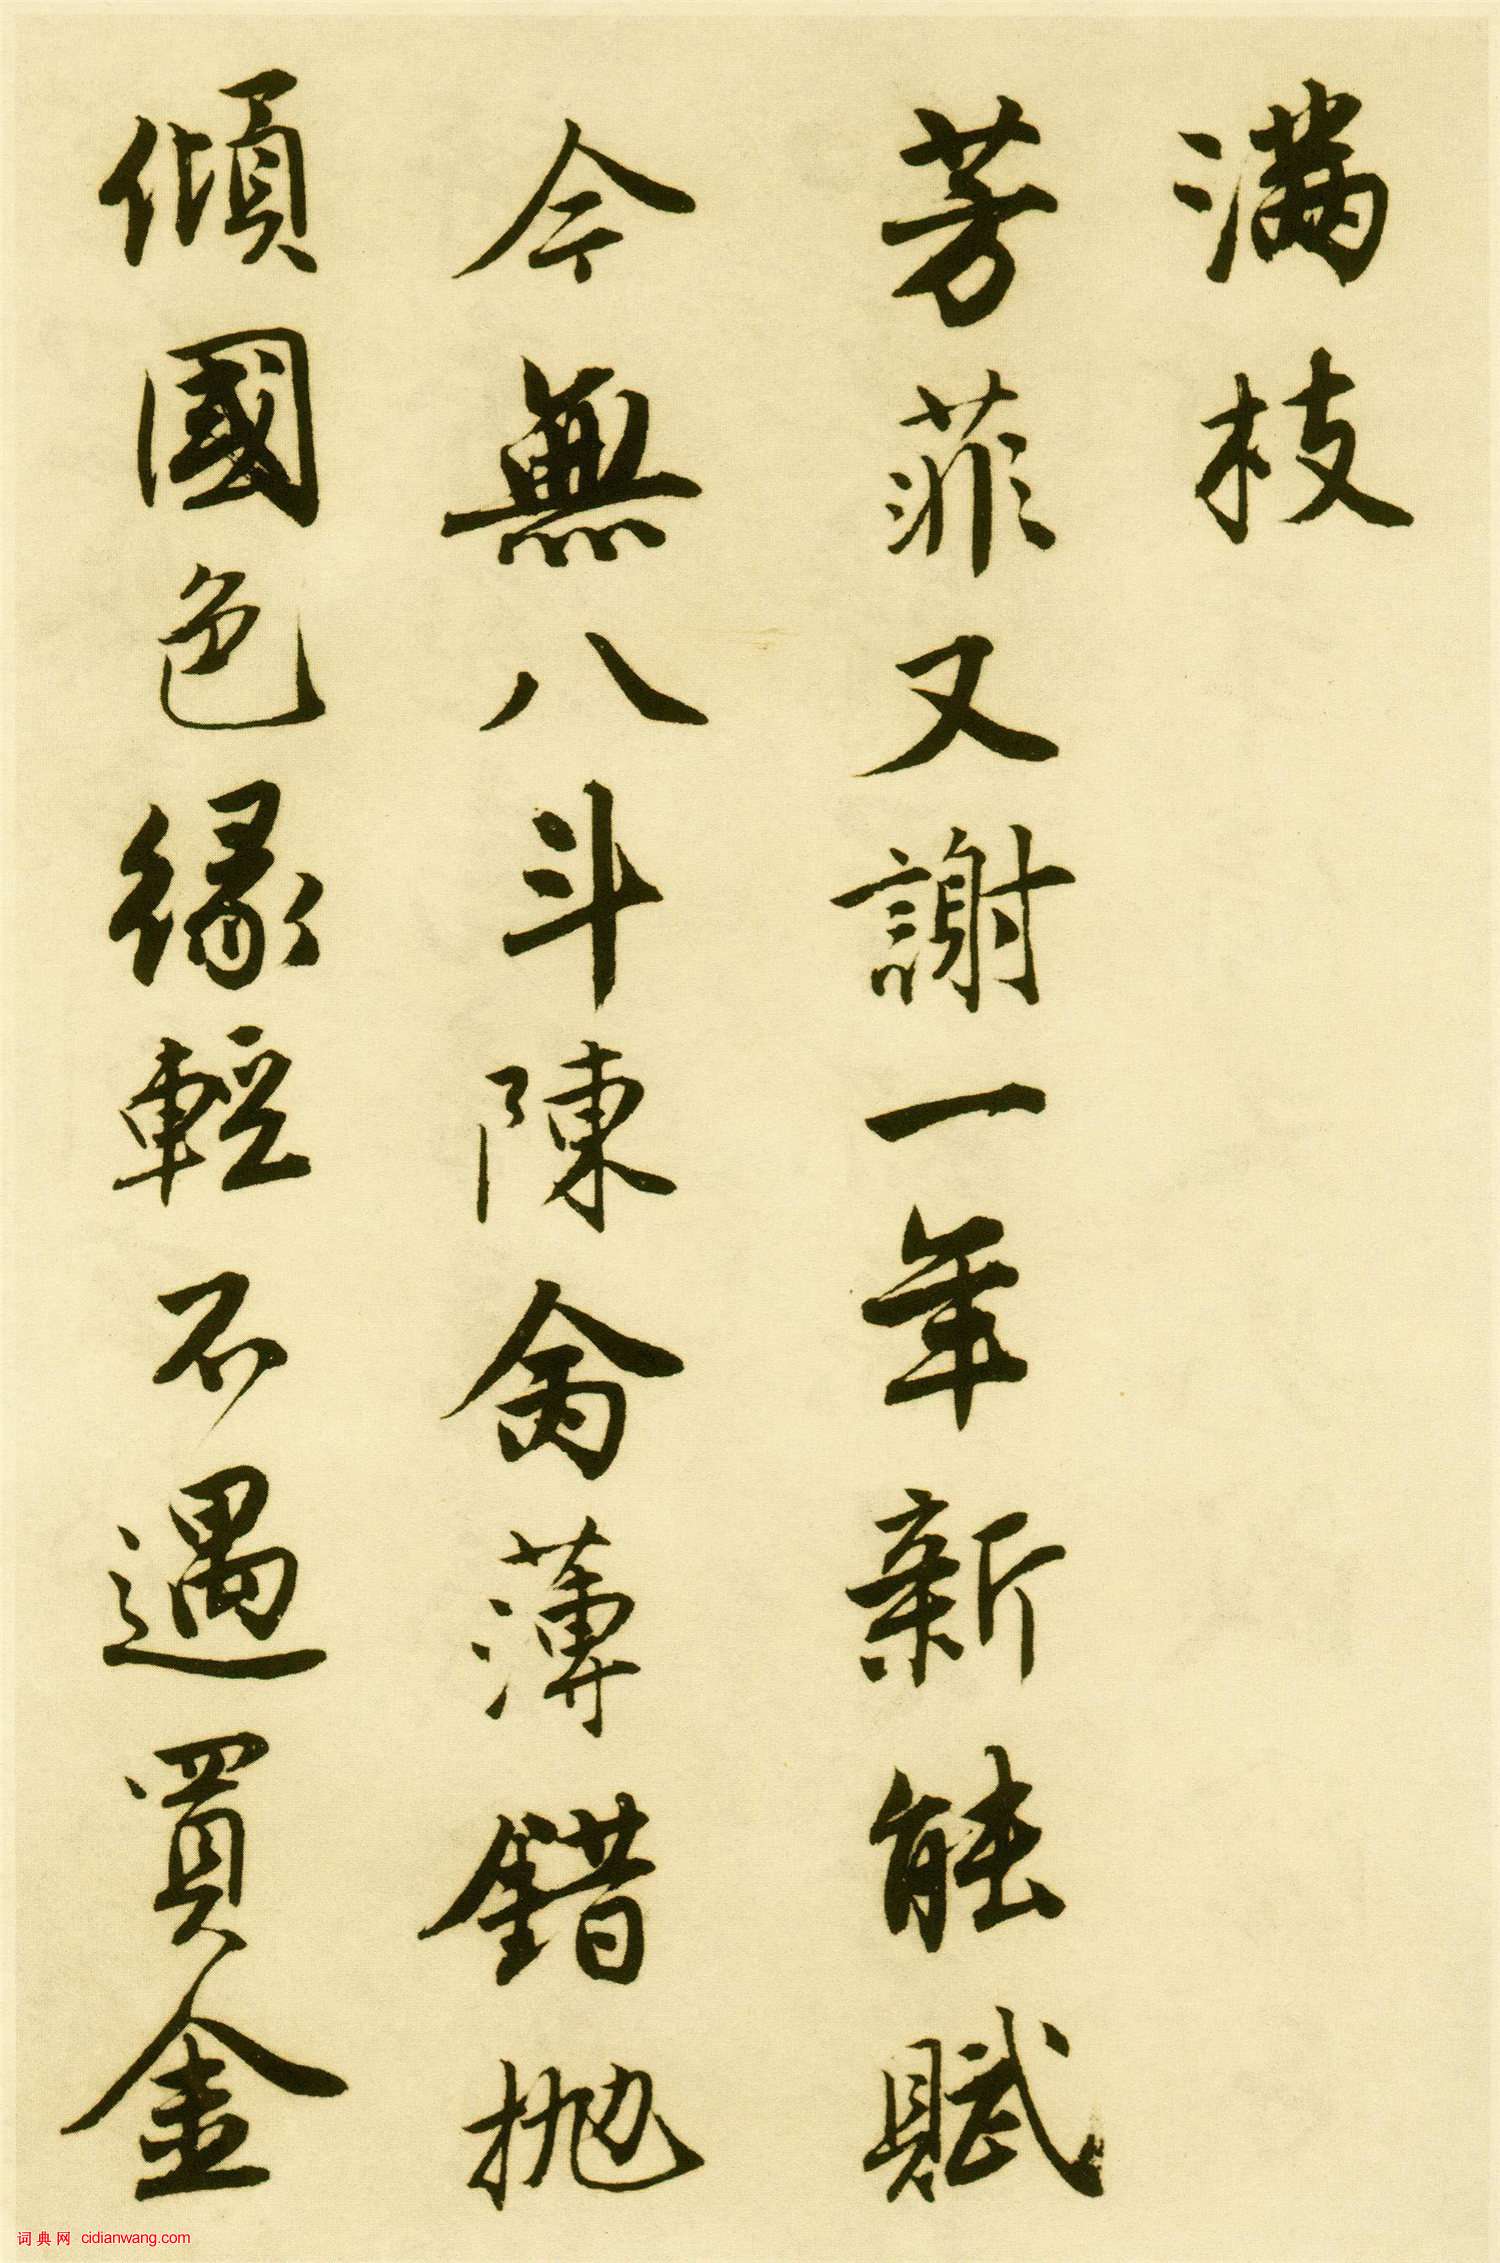 满枝
芳菲又謝一年新能賦
今無八斗陳禽薄錯抛
傾國色緣輕不遇買金
词典网 cidianwang.com